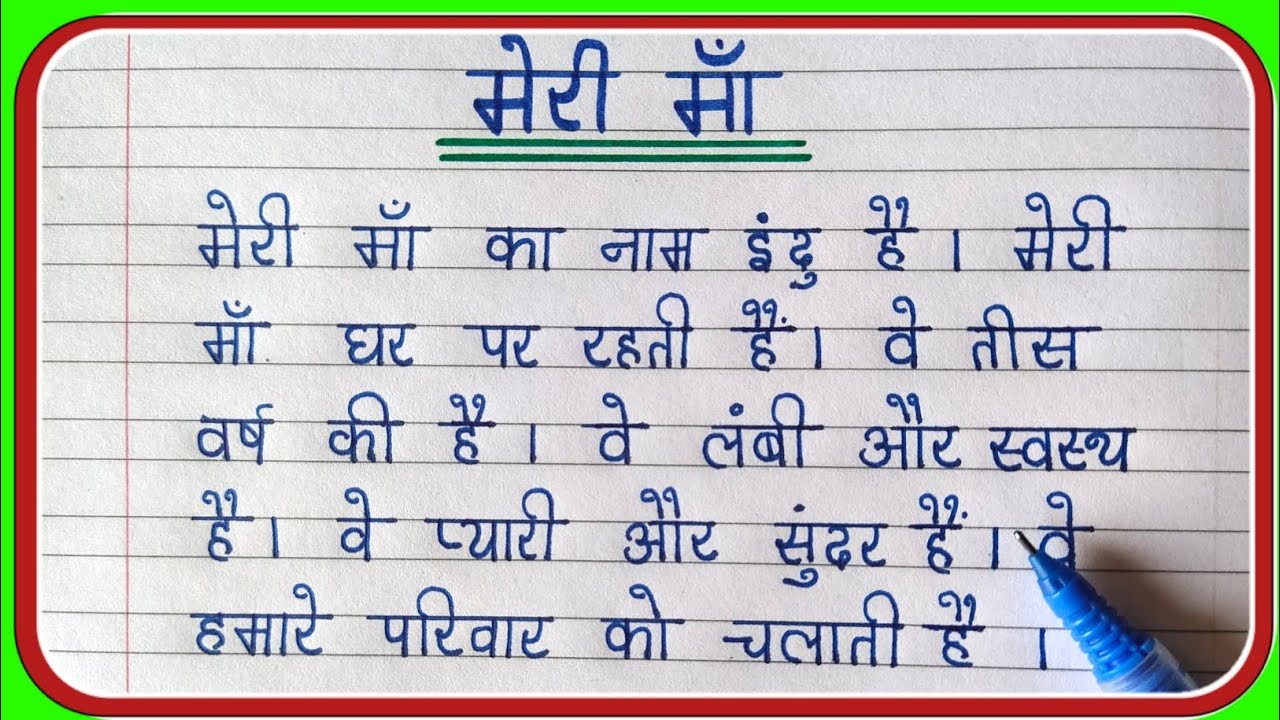 मेरी माँ
मेरी माँ का नाम इंदु है। मेरी
माँ घर पर रहती हैं। वे तीस
वर्ष की है। वे लंबी और स्वस्थ
है। वे प्यारी और सुंदर हैं। वे
हमारे परिवार को चलाती है ।